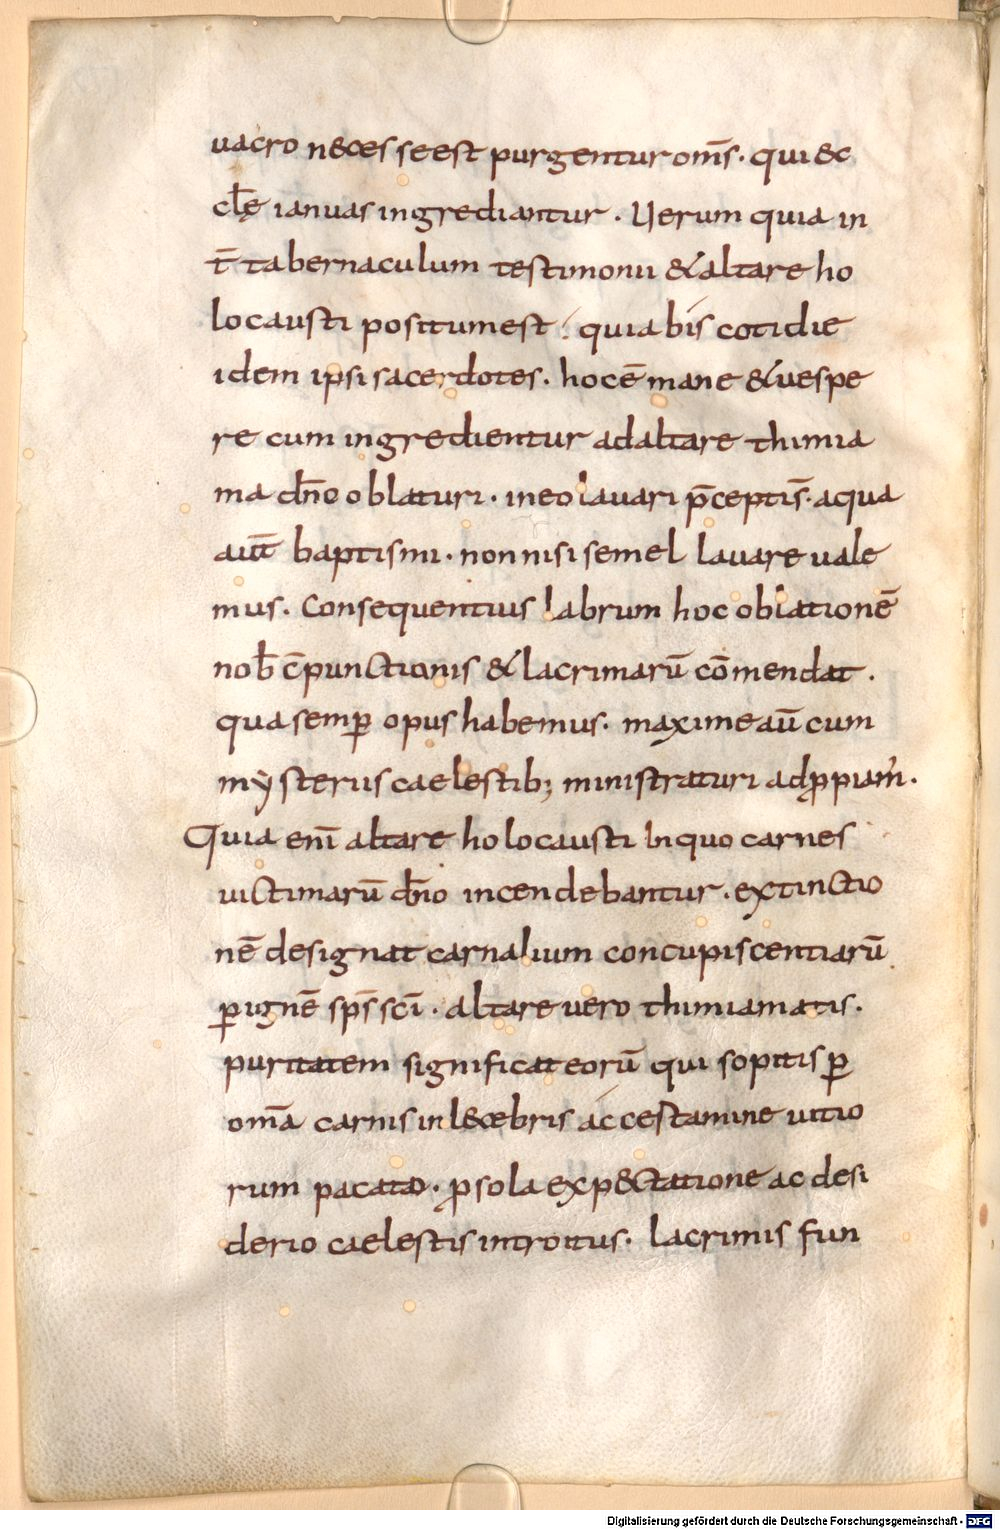 uacro n&ces se est purgentur om̅s. qui &c
cl̅ę ianuas ingrediantur. Uerum quia in
t̅ tabernaculum testimonii & altare ho
locausti positum est. quia bis cotidie
idem ipsi sacerdotes. hoc e̅ mane & uespe
re cum ingredientur ad altare thimia
ma dn̅o oblaturi. in eo lauari p̅cepti s̅. aqua
aut̅ baptismi. non nisi semel lauare uale
mus. Consequentius labrum hoc oblatione̅
nob̅ c̅punctionis & lacrimaru̅ co̅mendat.
qua semꝑ opus habemus. maxime au̅ cum
mẏsteriis caelestib; ministraturi adꝓpiam̅.
Quia eni̅ altare holocausti in quo carnes
uictimaru̅ dn̅o incendebantur. extinctio
ne̅ designat carnalium concupiscentiaru̅
ꝑ igne̅ sp̅s sc̅i. Altare uero thimiamatis.
puritatem significat eoru̅ qui sopitis ꝑ
om̅a carnis inl&cebris ac cestamine uitio
rum pacato. ꝓ sola exp&ctatione ac desi
derio caelestis introitus. lacrimis fun
Digitalisierung gefördert durch die Deutsche Forschungsgemeinschaft - DFG